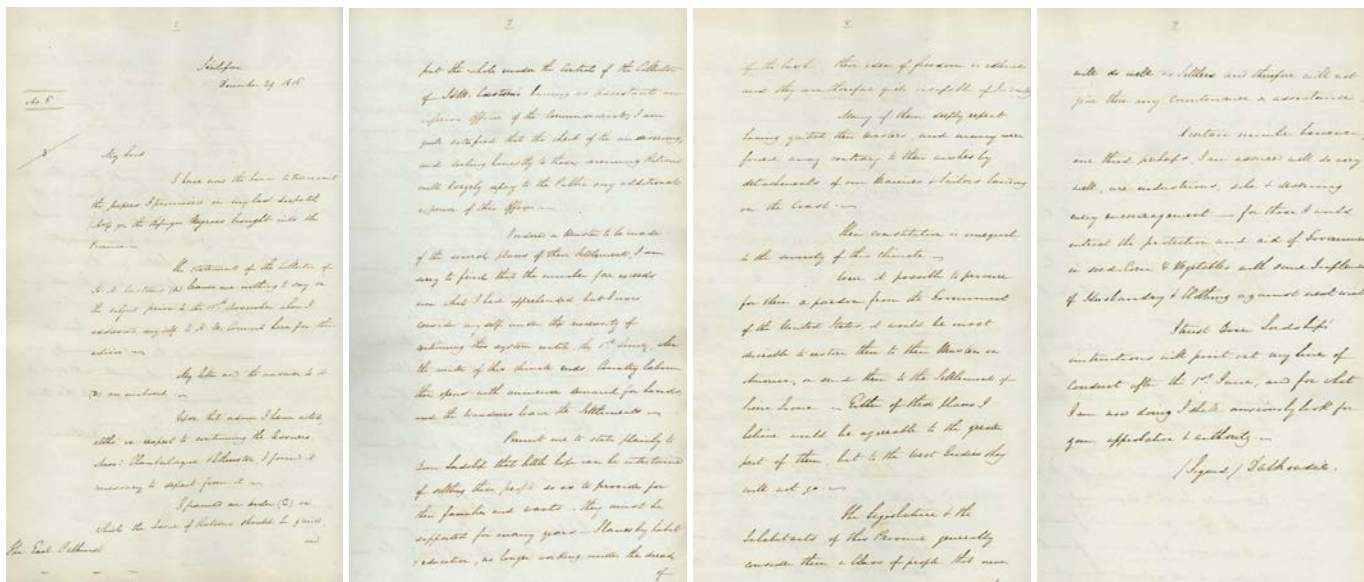 Halifax
December 29 1816
No. 8
My Lord
I have now the honor to transmit
the papers I promised in my last dispatch
on the Refugee Negroes brought into the
Province
The statement of the Collector of
H. M. Customs (A) leaves me nothing to say on
the subject prior to the November when I
addressed myself to H. M. Council here for their
advice
My letter and the answer to it
(B) are enclosed
Upon that advice I have acted,
altho in respect to continuing the
I found it
necessary to depart from it
I framed an order (C) on
which the issue of Rations should be guided,
and
The Earl Bathurst
7
put the whole under the control of the Collector
of H.M. Customs having as assistants an
inferior officer of the Commissariat, I am
quite satisfied that the check of the undeserving,
and dealing honestly to those receiving Rations
will largely repay to the Public any additional
expence of this Office
I ordered a Muster to be made
of the several places of their Settlement, I am
sorry to find that the number far exceeds
even what I had apprehended but I now
consider myself under the necessity of
continuing this system until the 1st June, when
the winter of this climate ends, Country labour
then opens with immense demand for hands,
and the Wanderers leave the Settlements
Permit me to state plainly to
Your Lordship that little hope can be entertained
of settling these people so as to provide for
their families and wants – they must be
supported for many years – Slaves by habit
& education, no longer working under the dread
of
8
of the lash their idea of freedom is idleness
and they are therefore quite incapable of Industry
Many of them deeply repent
having quitted their Masters, and many were
forced away contrary to their wishes by
detachments of our Marines & Sailors landing
on the Coast
Their constitution is unequal
to the severity of this Climate
Were it possible to procure
for them a pardon from the Government
of the United States, it would be most
desirable to restore them to their Masters in
America, or send them to the Settlement of
Sierra Leone – Either of these plans I
believe would be agreeable to the greater
part of them, but to the West Indies they
will not go
The Legislature & the
Inhabitants of this Province generally
consider them a Class of people that never
9
will do well as Settlers and therefore will not
give them any countenance or assistance
A certain number however
one third perhaps, I am assured will do very
well, are industrious, sober & deserving
every encouragement – for those I would
entreat the protection and aid of Government
in seed Corn & Vegetables with some Implements
of Husbandry & Clothing against next winter
I trust Your Lordship's
instructions will point out my line of
conduct after the 1st June, and for what
I am now doing I shall anxiously look for
your approbation & authority
(Signed) Dalhousie